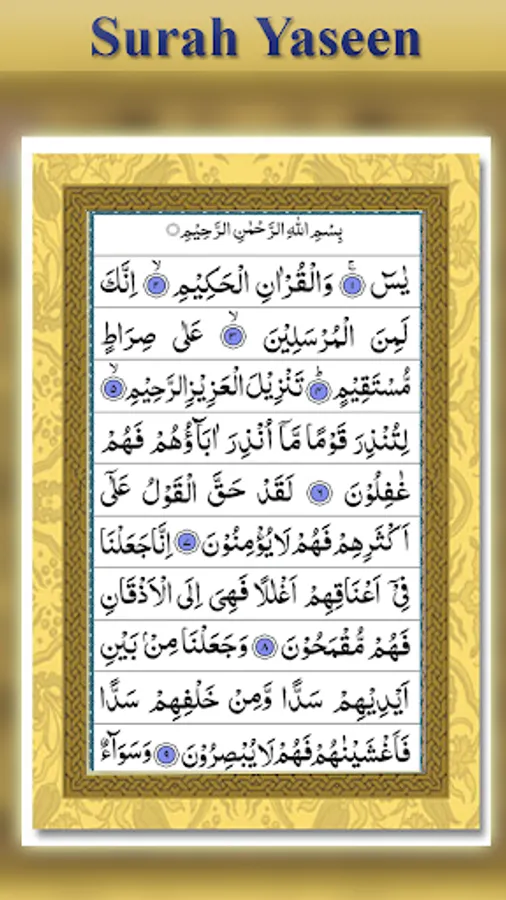 Surah Yaseen
بِسْمِ اللهِ الرَّحْمٰنِ الرَّحِيْمِ
يٰسٓ ۚ﴿۱﴾ وَالْقُرْاٰنِ الْحَكِيْمِ ۙ﴿۲﴾ اِنَّكَ
لَمِنَ الْمُرْسَلِيْنَ ۙ﴿۳﴾ عَلٰى صِرَاطٍ
مُّسْتَقِيْمٍ ؕ﴿۴﴾ تَنْزِيْلَ الْعَزِيْزِ الرَّحِيْمِ ۙ﴿۵﴾
لِتُنْذِرَ قَوْمًا مَّاۤ اُنْذِرَ اٰبَآؤُهُمْ فَهُمْ
غٰفِلُوْنَ ﴿۶﴾ لَقَدْ حَقَّ الْقَوْلُ عَلٰٓى
اَكْثَرِهِمْ فَهُمْ لَا يُؤْمِنُوْنَ ﴿۷﴾ اِنَّا جَعَلْنَا
فِيْٓ اَعْنَاقِهِمْ اَغْلٰلًا فَهِيَ اِلَى الْاَذْقَانِ
فَهُمْ مُّقْمَحُوْنَ ﴿۸﴾ وَجَعَلْنَا مِنْۢ بَيْنِ
اَيْدِيْهِمْ سَدًّا وَّمِنْ خَلْفِهِمْ سَدًّا
فَاَغْشَيْنٰهُمْ فَهُمْ لَا يُبْصِرُوْنَ ﴿۹﴾ وَسَوَآءٌ